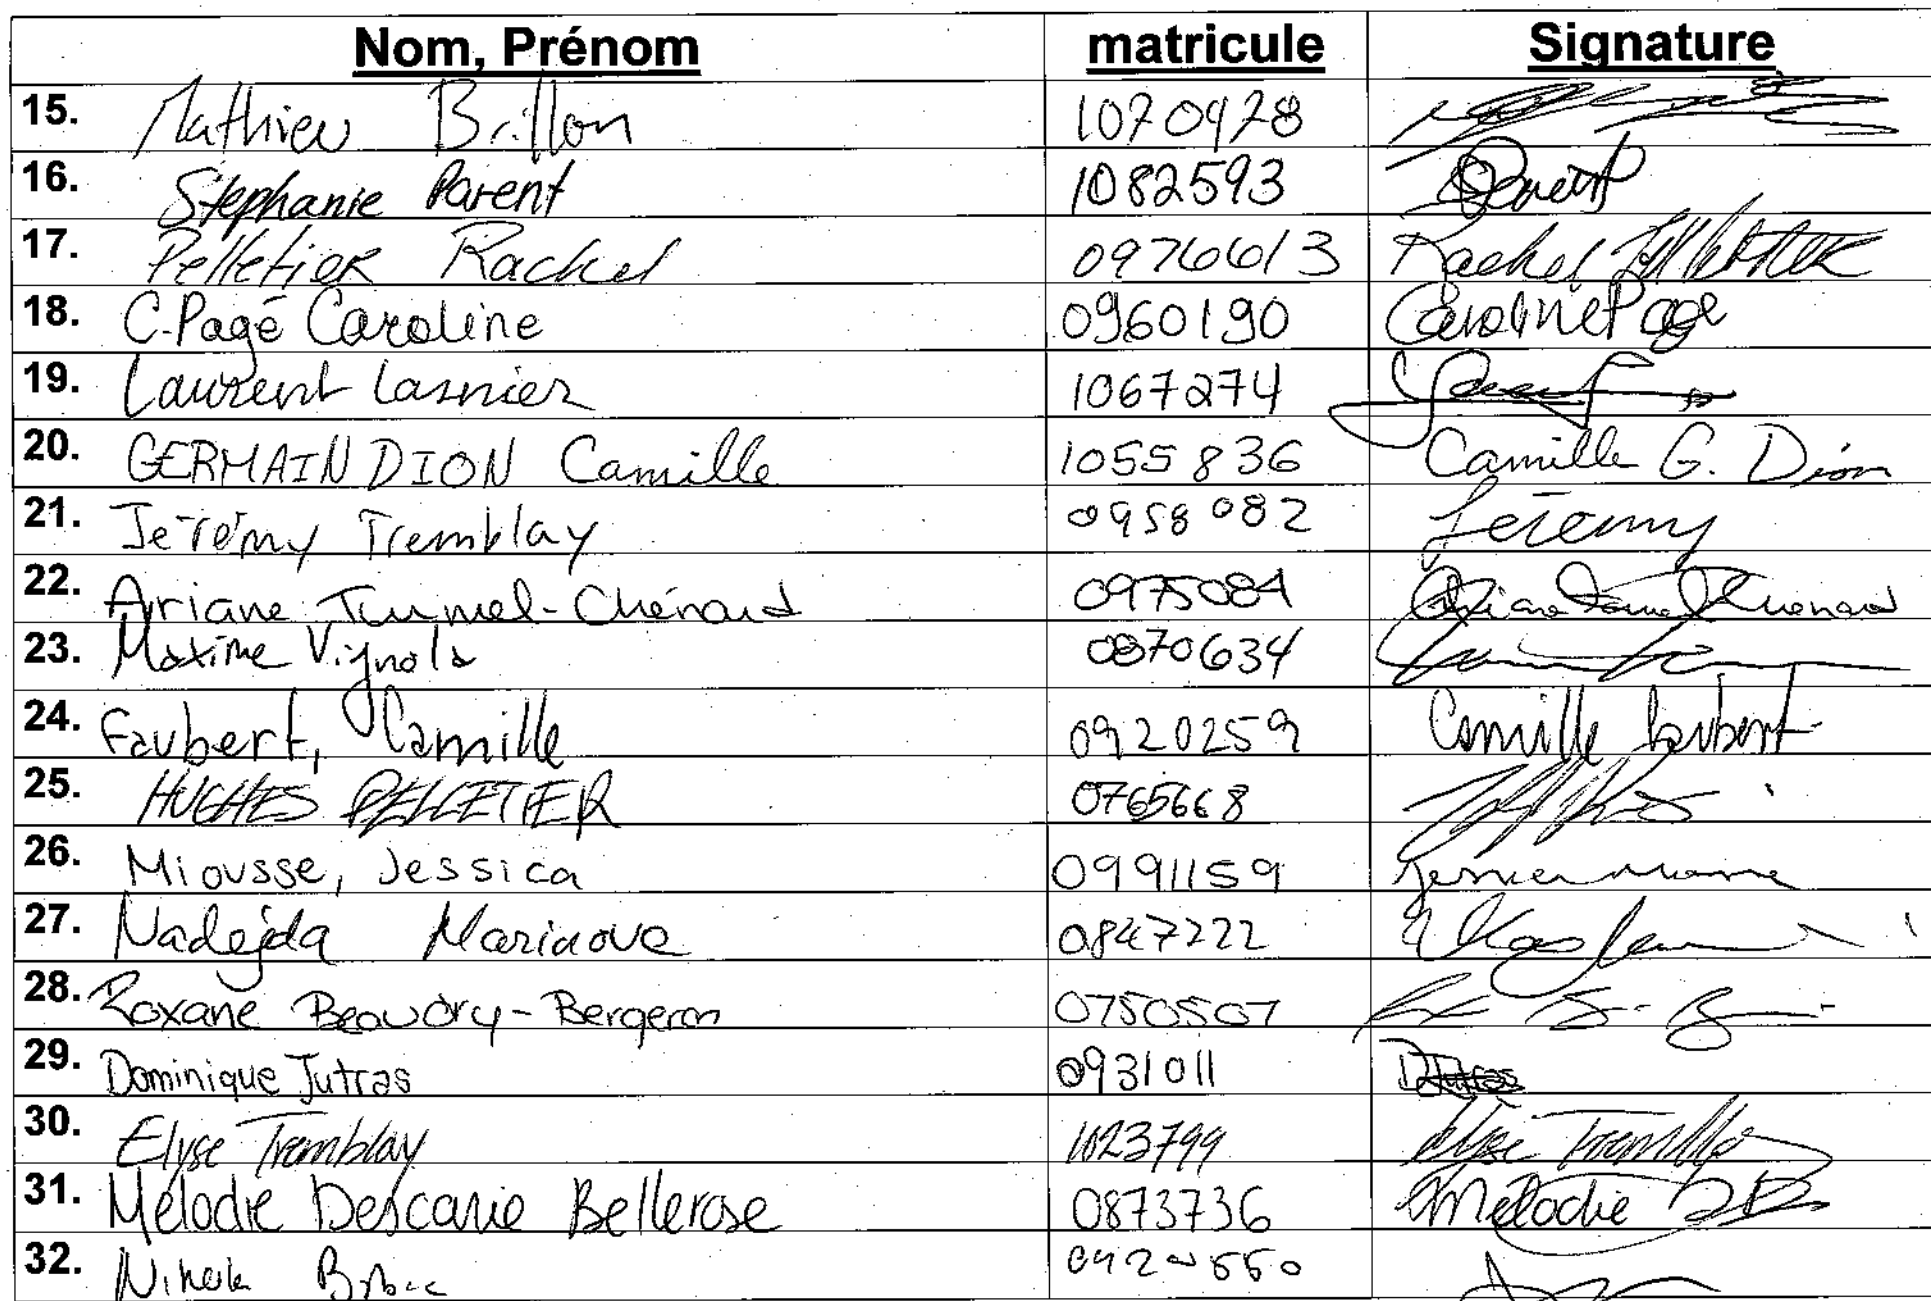 Nom, Prénom matricule Signature
15. Mathieu Brillon 1070978
16. Stephanie Parent 1082593
17. Pelletier Rachel 0976613 Rachel Pelletier
18. C.Pagé Caroline 0960190 Caroline Page
19. Laurent Lasnier 1067274
20. GERMAIN DION Camille 1055836 Camille G. Dion
21. Jérémy Tremblay 0958082 Jérémy
22. Ariane Tummel-Chénard 0975084
23. Maxime Vignola 0870634
24. Faubert, Camille 0920259 Camille Faubert
25. HUGHES PELLETIER 0765668
26. Miousse, Jessica 0991159
27. Nadejda Marinova 0847222
28. Roxane Beaudry-Bergeron 0750507
29. Dominique Jutras 0931011 DJutras
30. Elyse Tremblay 1023799 Elyse Tremblay
31. Mélodie Descarie Bellerose 0873736 Mélodie DB
32.